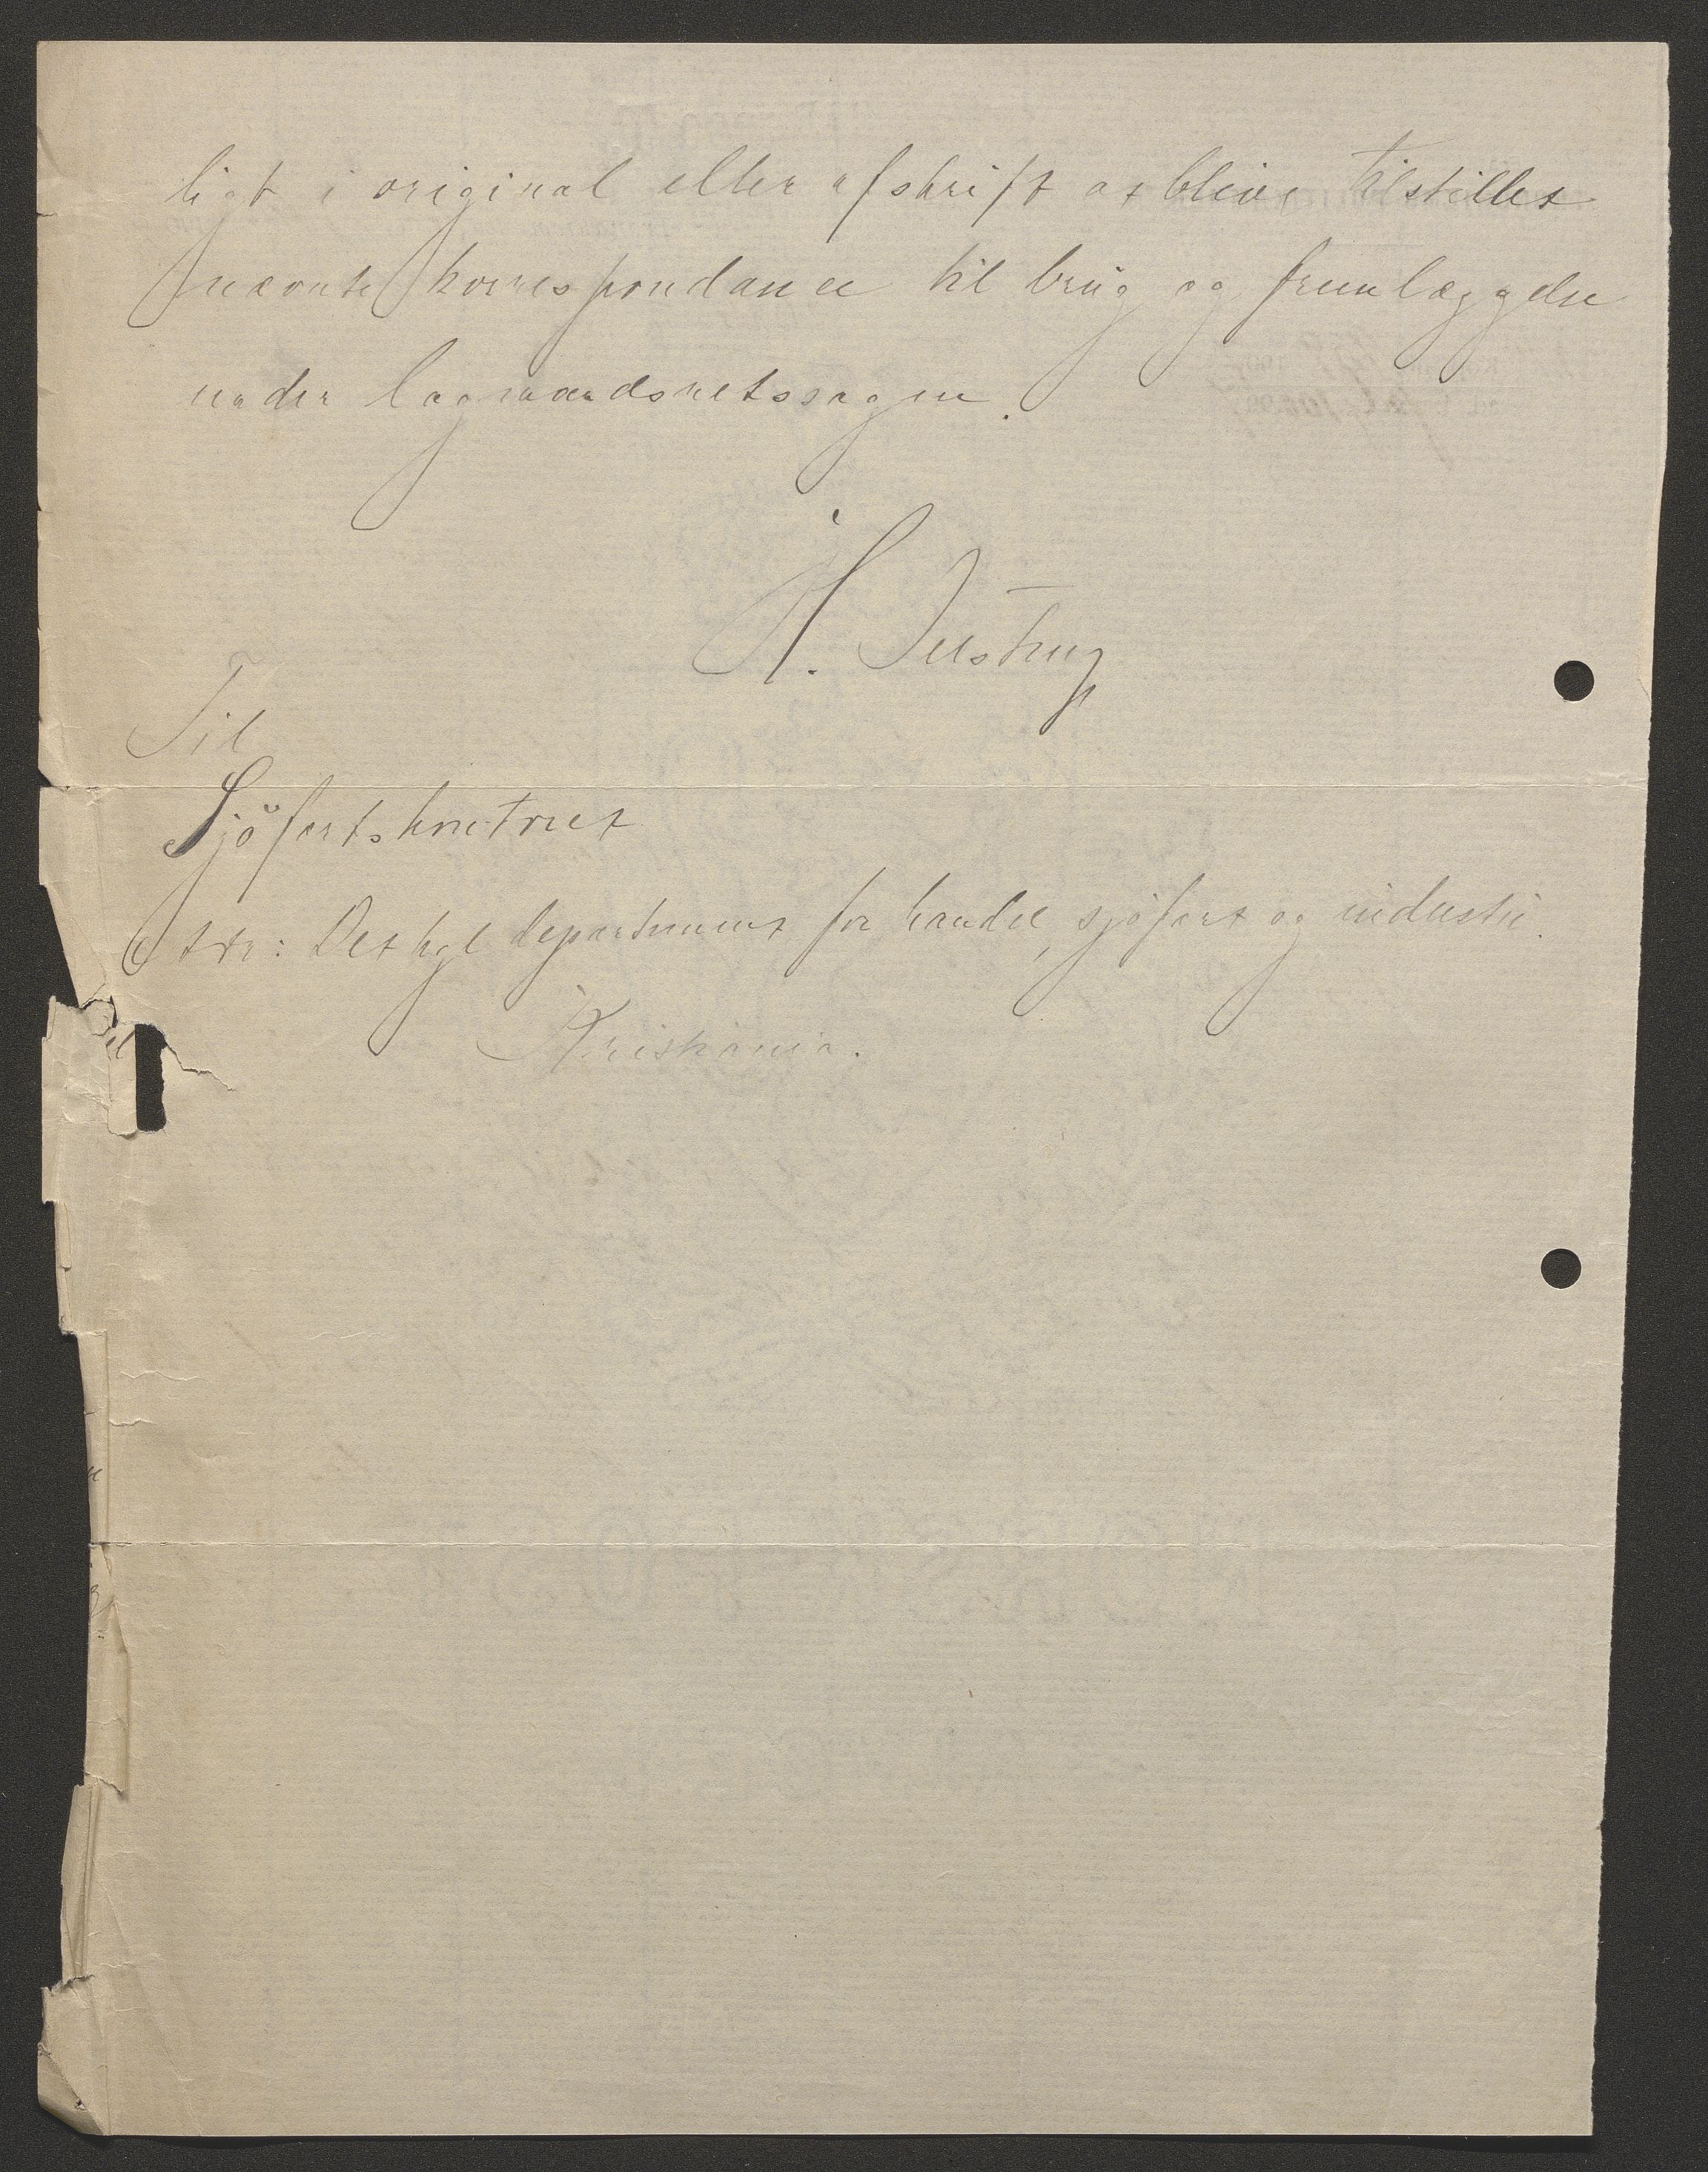 ligt i original eller afskrift at blive tilstillet
nævnte korrespondance til brug og fremlæggelse
under lagmandsretssagen.
H. Justrup
Til
Sjöfartskontoret
str: Det kgl departement for handel, sjöfart og industri.
Kristiania.